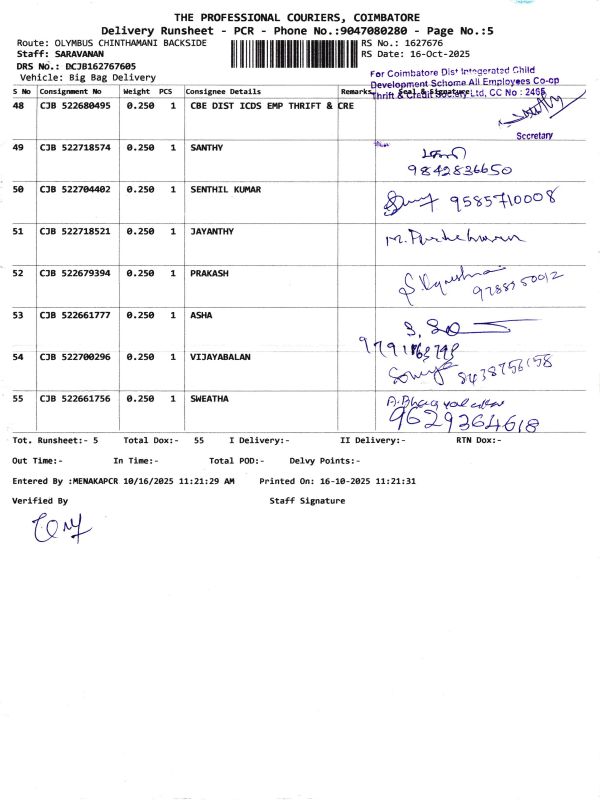 THE PROFESSIONAL COURIERS, COIMBATORE
Delivery Runsheet - PCR - Phone No.:9047080280 - Page No.:5
Route: OLYMBUS CHINTHAMANI BACKSIDE RS No.: 1627676
Staff: SARAVANAN RS Date: 16-Oct-2025
DRS No.: DCJB162767605
Vehicle: Big Bag Delivery
For Coimbatore Dist Integerated Child
Development Schome All Employees Co-op
Thrift & Credit Society Ltd, CC No : 2465
S No Consignment No Weight PCS Consignee Details Remarks Seal & Signature
48 CJB 522680495 0.250 1 CBE DIST ICDS EMP THRIFT & CRE
Secretary
49 CJB 522718574 0.250 1 SANTHY
9842836650
50 CJB 522704402 0.250 1 SENTHIL KUMAR 9585710008
51 CJB 522718521 1 0.250 JAYANTHY
52 CJB 522679394 0.250 1 PRAKASH
53 CJB 522661777 0.250 1 ASHA
54 CJB 522700296 0.250 1 VIJAYABALAN 8438756158
55 CJB 522661756 0.250 1 SWEATHA
9629364618
Tot. Runsheet:- 5 Total Dox:- 55 I Delivery:- II Delivery:- RTN Dox:-
Out Time:- In Time:- Total POD:- Delvy Points:-
Entered By :MENAKAPCR 10/16/2025 11:21:29 AM Printed On: 16-10-2025 11:21:31
Verified By Staff Signature